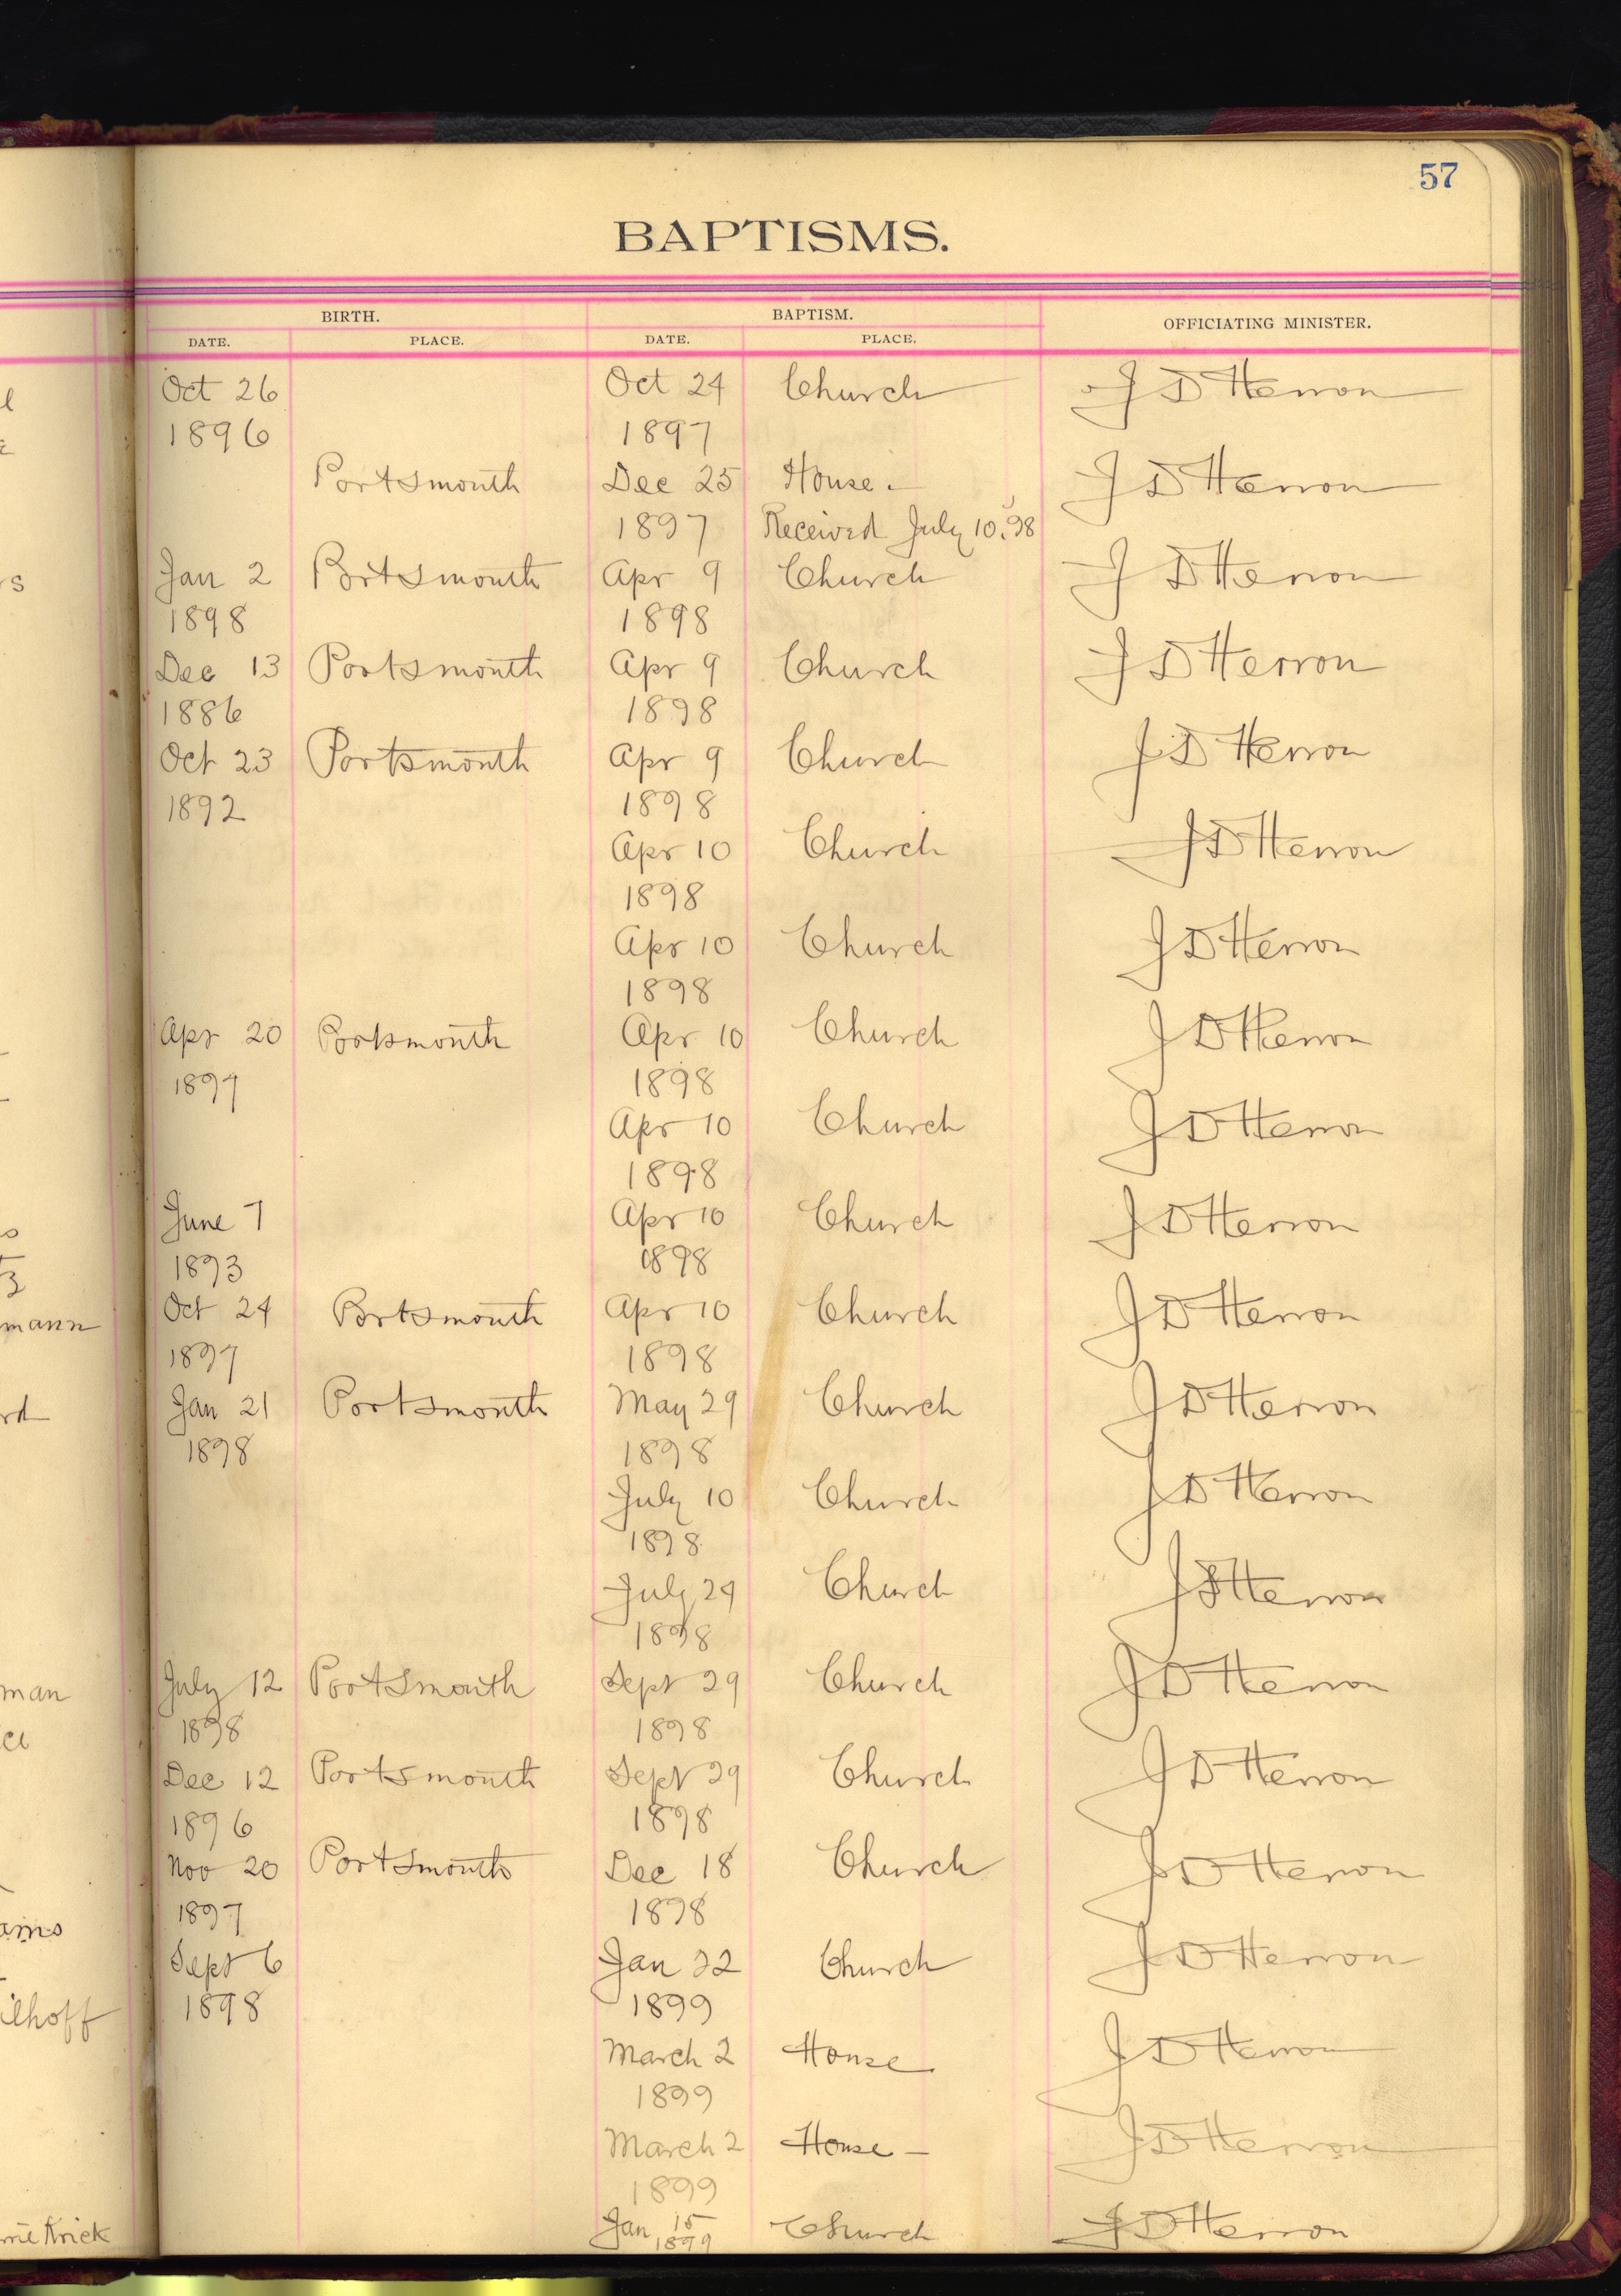 57
BAPTISMS.
BIRTH. BAPTISM. OFFICIATING MINISTER.
DATE. PLACE. DATE. PLACE.
Oct 26 Oct 24 Church J D Herron
1896 1897
Portsmouth Dec 25 House. J D Herron
1897 Received July 10, '98
Jan 2 Portsmouth Apr 9 Church J D Herron
1898 1898
Dec 13 Portsmouth Apr 9 Church J D Herron
1886 1898
Oct 23 Portsmouth Apr 9 Church J D Herron
1892 1898
Apr 10 Church J D Herron
1898
Apr 10 Church J D Herron
1898
Apr 20 Portsmouth Apr 10 Church J D Herron
1897 1898
Apr 10 Church J D Herron
1898
June 7 Apr 10 Church J D Herron
1893 1898
Oct 24 Portsmouth Apr 10 Church J D Herron
mann
1897 1898
Jan 21 Portsmouth May 29 Church J D Herron
1898 1898
July 10 Church J D Herron
1898
July 24 Church J D Herron
1898
man July 12 Portsmouth Sept 29 Church J D Herron
1898 1898
Dec 12 Portsmouth Sept 29 Church J D Herron
1896 1898
Nov 20 Portsmouth Dec 18 Church J D Herron
1897 1898
ams
Sept 6 Jan 22 Church J D Herron
1898 1899
ilhoff
March 2 House J D Herron
1899
March 2 House – J D Herron
1899
rrie Krick Jan 15 Church J D Herron
1899